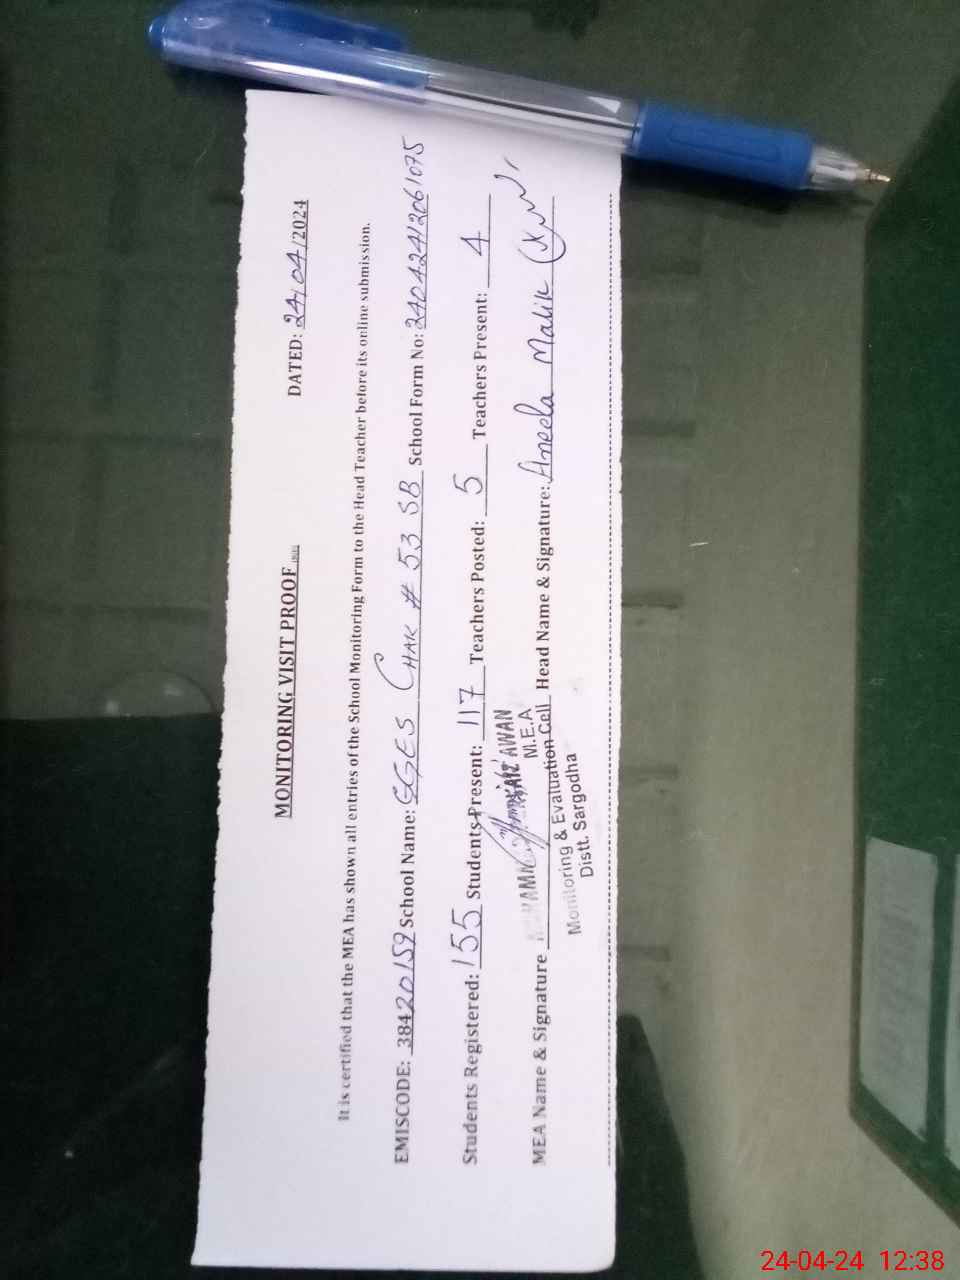 MONITORING VISIT PROOF
DATED: 24/04/2024
It is certified that the MEA has shown all entries of the School Monitoring Form to the Head Teacher before its online submission.
EMISCODE: 38420159 School Name: GGES CHAK # 53 SB School Form No: 24042412061075
Students Registered: 155 Students Present: 117 Teachers Posted: 5 Teachers Present: 4
MEA Name & Signature Head Name & Signature: Aneela Malik
AWAN
M.E.A
Monitoring & Evaluation Cell
Distt. Sargodha
24-04-24 12:38